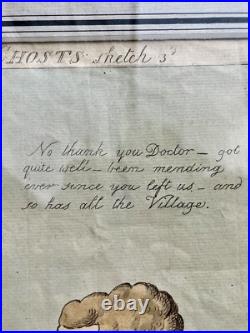 GHOSTS sketch 3d
No thank you Doctor — got
quite well — been mending
ever since you left us — and
so has all the Village.